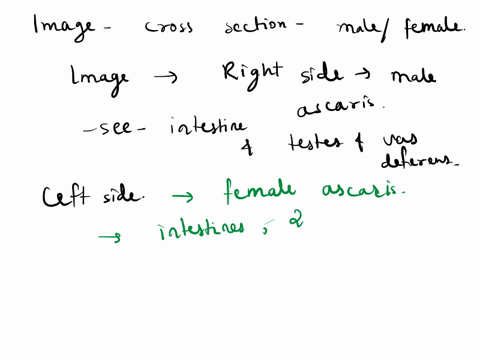 Image - cross section - male/ female.
Image → Right side → male
ascaris.
- see - intestine & testes & vas
deferens.
Left side. → female ascaris.
→ intestines, 2